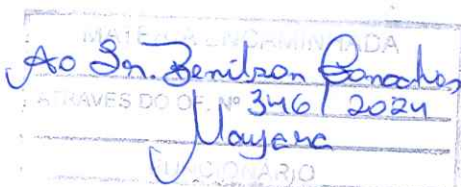 MATÉRIA ENCAMINHADA
Ao Sr. Benilson
ATRAVÉS DO OF. Nº 346/2024
Mayara
FUNCIONÁRIO